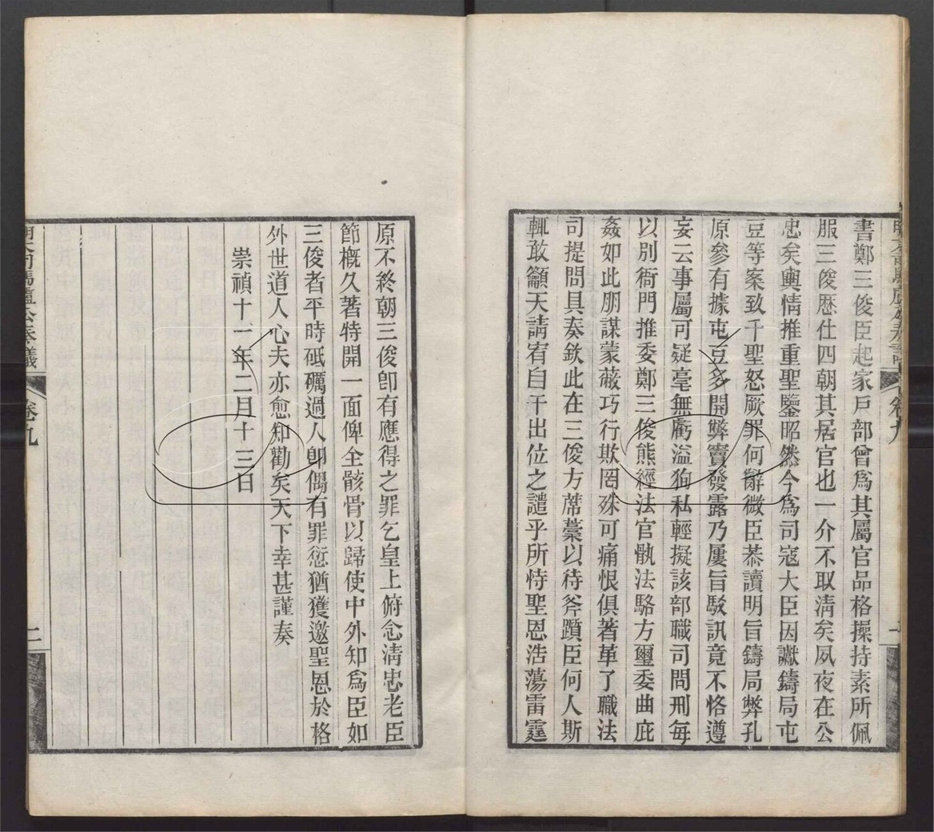 書鄭三俊臣起家戶部曾爲其屬官品格操持素所佩
服三俊歷仕四朝其居官也一介不取淸矣夙夜在公
忠矣輿情推重聖鑒昭然今爲司寇大臣因讞鑄局屯
豆等案致干聖怒厥罪何辭微臣恭讀明旨鑄局弊孔
原參有據屯豆多開弊竇發露乃屢旨駁訊竟不恪遵
妄云事屬可疑毫無虧溢狥私輕擬該部職司問刑每
以別衙門推委鄭三俊熊經法官骩法駱方璽委曲庇
姦如此朋謀蒙蔽巧行欺罔殊可痛恨俱著革了職法
司提問具奏欽此在三俊方蓆藁以待斧躓臣何人斯
輒敢籲天請宥自干出位之譴乎所恃聖恩浩蕩雷霆
原不終朝三俊卽有應得之罪乞皇上俯念淸忠老臣
節概久著特開一面俾全骸骨以歸使中外知爲臣如
三俊者平時砥礪過人卽偶有罪愆猶獲邀聖恩於格
外世道人心夫亦愈知勸矣天下幸甚謹奏
崇禎十一年二月十三日
卷九
二